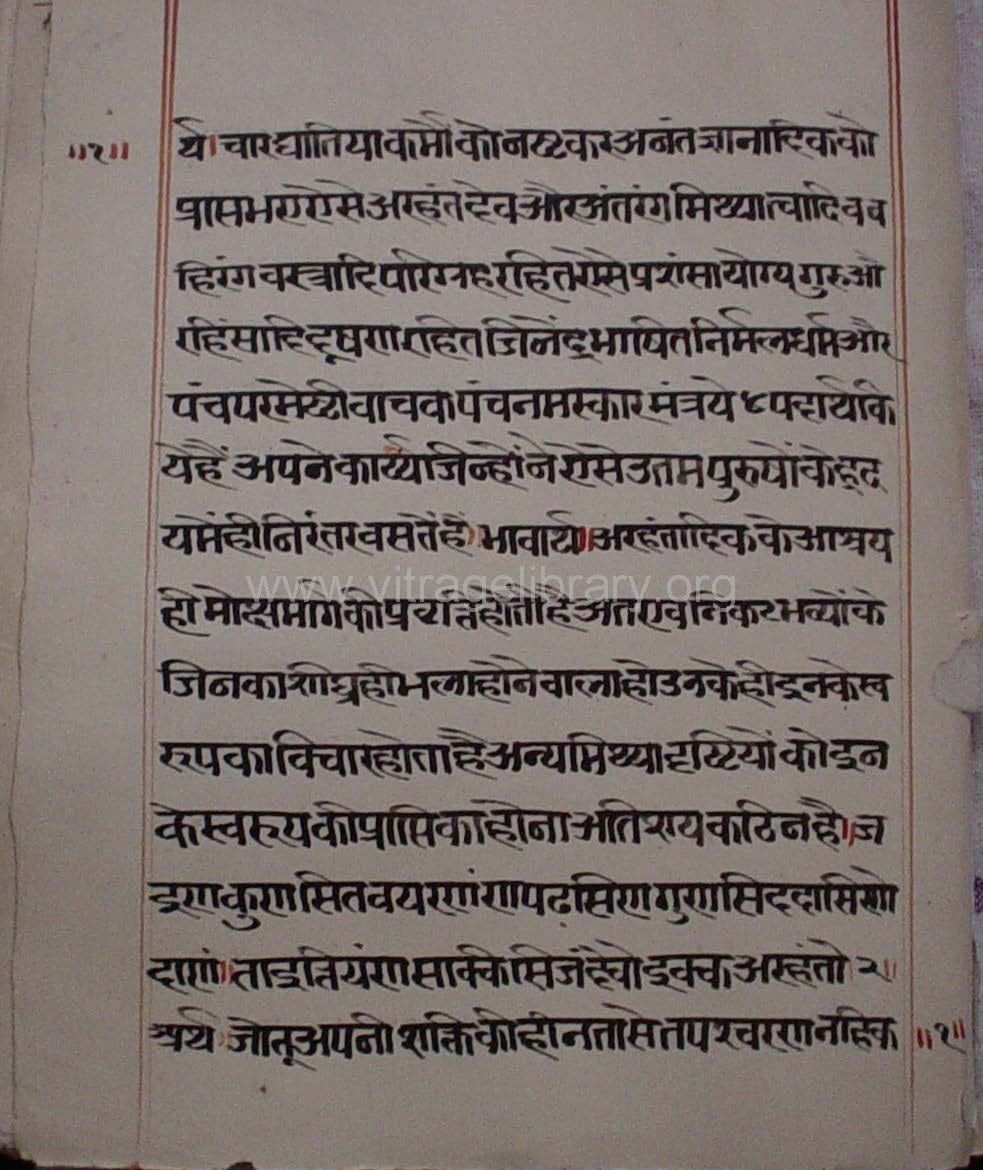 ॥१॥ र्थ। चारघातियाकर्मोंकोनष्टकरअनंतज्ञानादिकको
प्राप्तभएऐसेअरहंतदेवऔरअंतरंगमिथ्यात्वादिवव
हिरंगवस्त्रादिपरिग्रहरहितऐसेप्रशंसायोग्यगुरुऔ
रहिंसादिदूषणरहितजिनेंद्रभाषितनिर्मलधर्मऔर
पंचपरमेष्टीवाचकपंचनमस्कारमंत्रये४पदार्थकि
येहैं अपनेकार्य्यजिन्होंनेऐसेउत्तमपुरुषोंकेहृद
यमेंहीनिरंतरवसतेंहैं।भावार्थ।अरहंतादिककेआश्रय
हीमोक्षमार्गकीप्रवृत्तिहोतीहैअतएवनिकटभव्योंके
जिनकाशीघ्रहीभलाहोनेवालाहोउनकेहीइनकेस्व
रुपकाविचारहोताहैअन्यमिथ्यादृष्टियोंकोइन
केस्वरुपकीप्राप्तिकाहोनाअतिशयकठिनहै।ज
इणकुणसितवयरणंणपढसिणगुणसिददासिणो
दाणं।ताइत्तियंणसक्किसिजंदेवोइक्कअरहंतो२।
अर्थ।जोतूअपनीशक्तिकीहीनतासेतपश्चरणनहिक ॥१॥
www.vitragelibrary.org